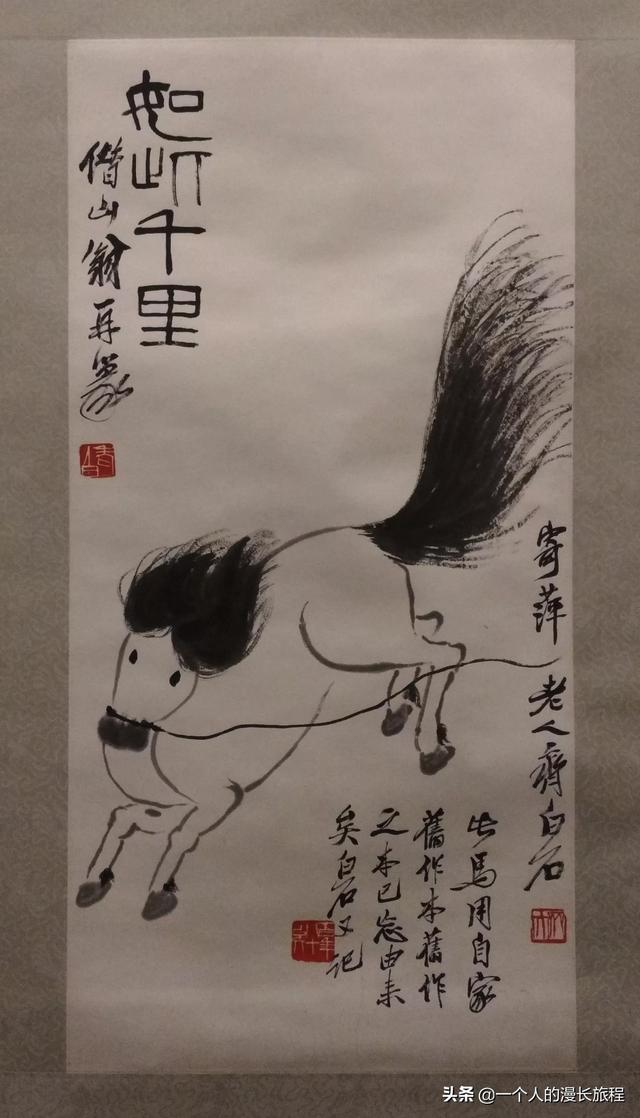 如此千里
借山翁再篆
寄萍老人齊白石
此馬用自家
舊作本舊作
之本已忘由来
矣白石又记
头条 @一个人的漫长旅程